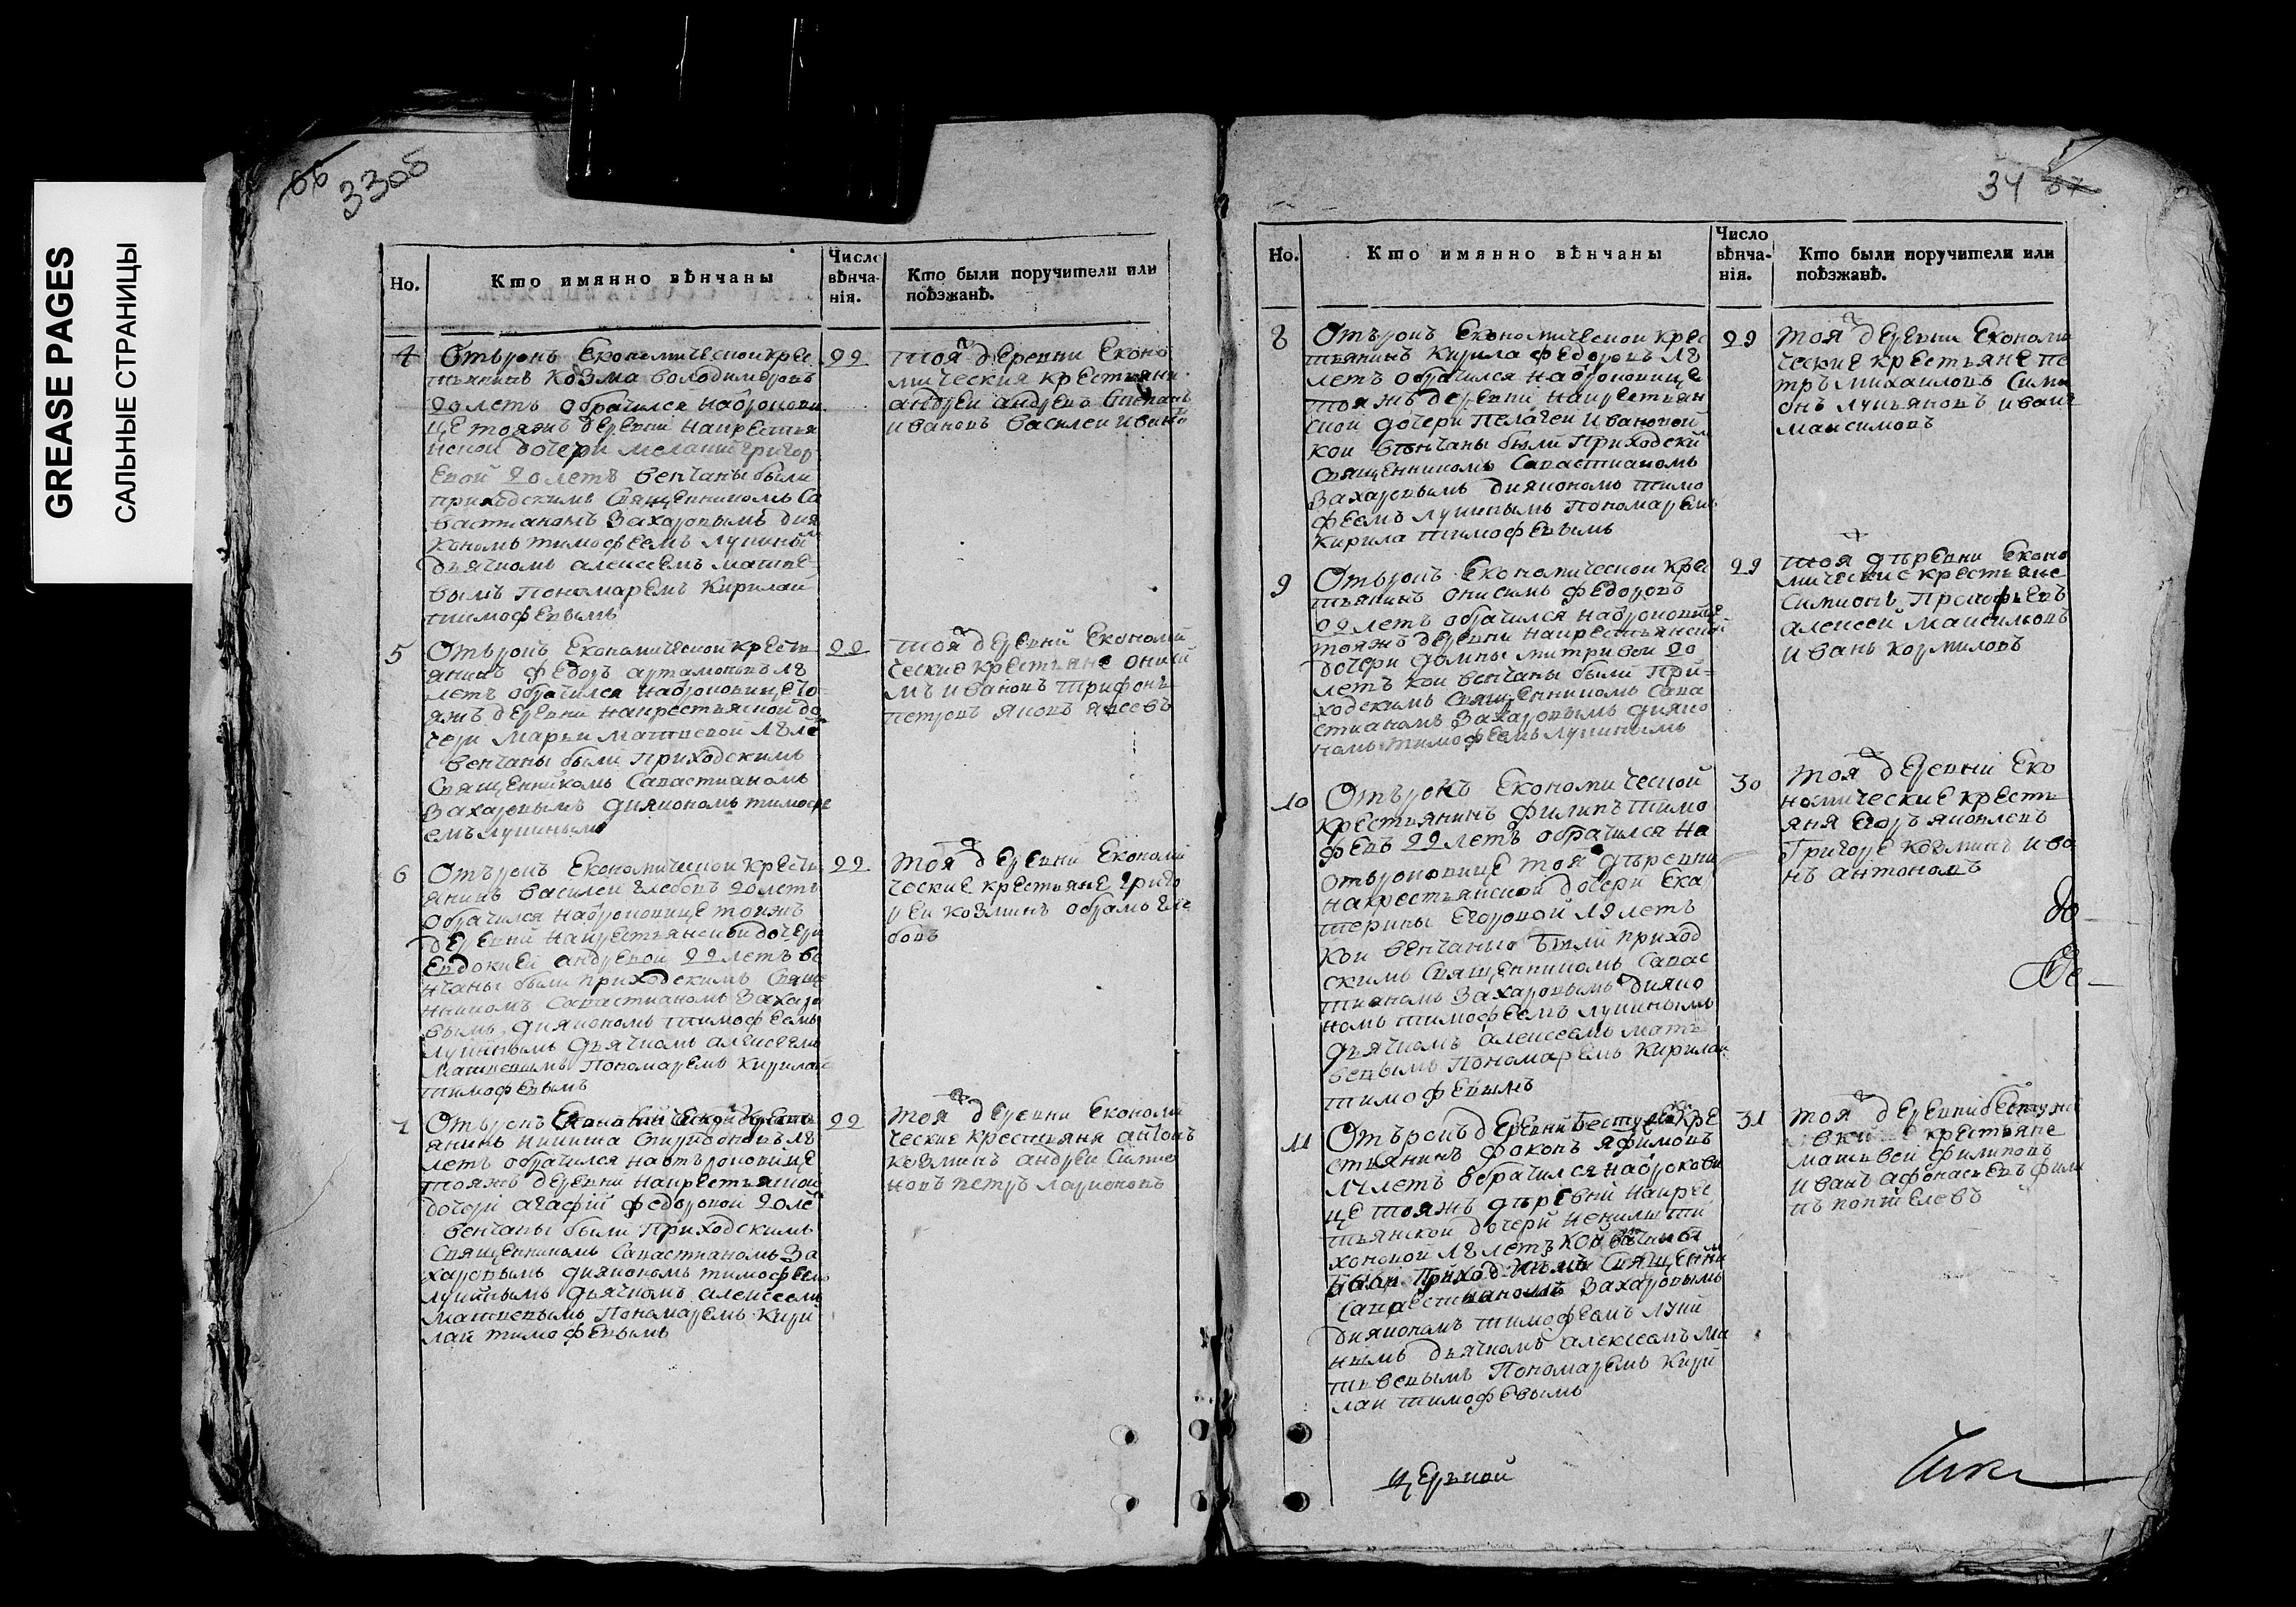 GREASE PAGES
САЛЬНЫЕ СТРАНИЦЫ
66
33об
Но.
Кто имянно вѣнчаны
Число вѣнча-нія.
Кто были поручители или поѣзжанѣ.
4
Отърокъ Економической крес
тьянинъ Козма володимеровъ
20 летъ обрачился наброкови
це тояжъ деревни накрестья
нской дочери мелании григор
евой 20 летъ венчаны были
приходскимъ Священникомъ Са
вастианомъ Захаровымъ дия
кономъ тимофеемъ лупины
дьячкомъ алексеемъ матве
вымъ Пономаремъ Кирилай
тимофевымъ
22
тоя деревни Еконо
мическия крестьяни
андреи андревъ Степанъ
ивановъ василеи ивано
5
Отърокъ Економической кресть
янинъ федоръ артамоновъ 18
летъ обрачился наброковице то
яжъ деревни накрестьяской до
чери марьи матвевой 18 ле
венчаны были приходскимъ
Священикомъ Савастианомъ
Захаровымъ диякономъ тимофе
емъ лупинымъ
22
тоя деревни Економи
ческие крестьяне ониси
мъ ивановъ трифонъ
петровъ яковъ
6
Отърокъ Економической кресть
янинъ василеи глебовъ 20 летъ
обрачился наброковице тояжъ
деревни накрестьянской дочери
Евдокией андревой 22 летъ ве
нчаны были приходскимъ Свяще
нникомъ Савастианомъ Захаро
вымъ диякономъ тимофеемъ
лупинымъ дьячкомъ алексеемъ
матвевымъ Пономаремъ кирилай
тимофевымъ
22
тоя деревни Економи
ческие крестьяне григо
реи козминъ обрамъ гле
бовъ
7
Отърокъ Економической кресть
янинъ никита Спиридоновъ 18
летъ обрачился наотъроковице
тояжъ деревни накрестьяской
дочери агафии федоровой 20 ле
венчаны были Приходскимъ
Священикомъ Савастианомъ За
харовымъ дияконом тимофеемъ
лупинымъ дьячкомъ алексеемъ
матвевымъ Пономаремъ Кири
лаи тимофевымъ
22
тоя деревни Економи
ческие крестьяня антонъ
козминъ андреи Симио
новъ петръ ларионовъ
34
67
Но.
Кто имянно вѣнчаны
Число вѣнча-нія.
Кто были поручители или поѣзжанѣ.
8
Отърокъ Економической крес
тьянинъ Кирила федоровъ 18
летъ обрачился наброковице
тояжъ деревни накрестьян
ской дочери Пелагеи Ивановой
кои вѣнчаны были Приходски
Священникомъ Савастианомъ
Захаровымъ дияконом тимо
феемъ лупинымъ Пономаремъ
Кирила тимофевымъ
29
тоя деревни Економи
ческие крестьяне пе
тръ михаиловъ Сими
онъ лупьяновъ иванъ
максимовъ
9
Отърокъ Економической кре
тьянинъ онисимъ федоровъ
22 летъ обрачился наброковице
тояжъ деревни накрестьянской
дочери домны митривои 20
летъ кои венчаны были при
ходскимъ Священникомъ Сава
стианомъ Захаровымъ дияко
номъ тимофеемъ лупинымъ
29
тоя дъревни Еконо
мические крестьяне
Симионъ Прокофьевъ
алексеи максимовъ
иванъ кормиловъ
10
Отърокъ Економической
крестьянинъ филипъ тимо
февъ 22 летъ обрачился на
отъроковице тоя дъревни
накрестьянской дочери Ека
терины Егоровой 19 летъ
кои венчаныо были приход
скимъ Священникомъ Савас
тианомъ Захаровымъ дияко
номъ тимофеемъ лупинымъ
дьячкомъ алексеемъ мать
вевымъ Пономаремъ Кирилаи
тимофевымъ
30
тоя деревни Еко
номические кресть
яня Егоръ яковлевъ
Григоре козминъ ива
нъ антоновъ
11
Отърокъ деревни Бестужев кре
стьянинъ фоконъ яфимовъ
летъ обрачился наброкови
це тояжъ дъревни накрес
тьянской дочери ненилы ти
хоновои 18 летъ кои венчаны
были Приходскимъ Священни
Савастианомъ Захаровымъ
дияконамъ тимофеемъ лупи
нымъ дьячкомъ алексеемъ ма
твевымъ Пономаремъ Кири
лаи тимофевымъ
31
тоя деревни бестуж
евски крестьяне
матьвеи филиповъ
иванъ афонасьевъ фили
пъ
церькой